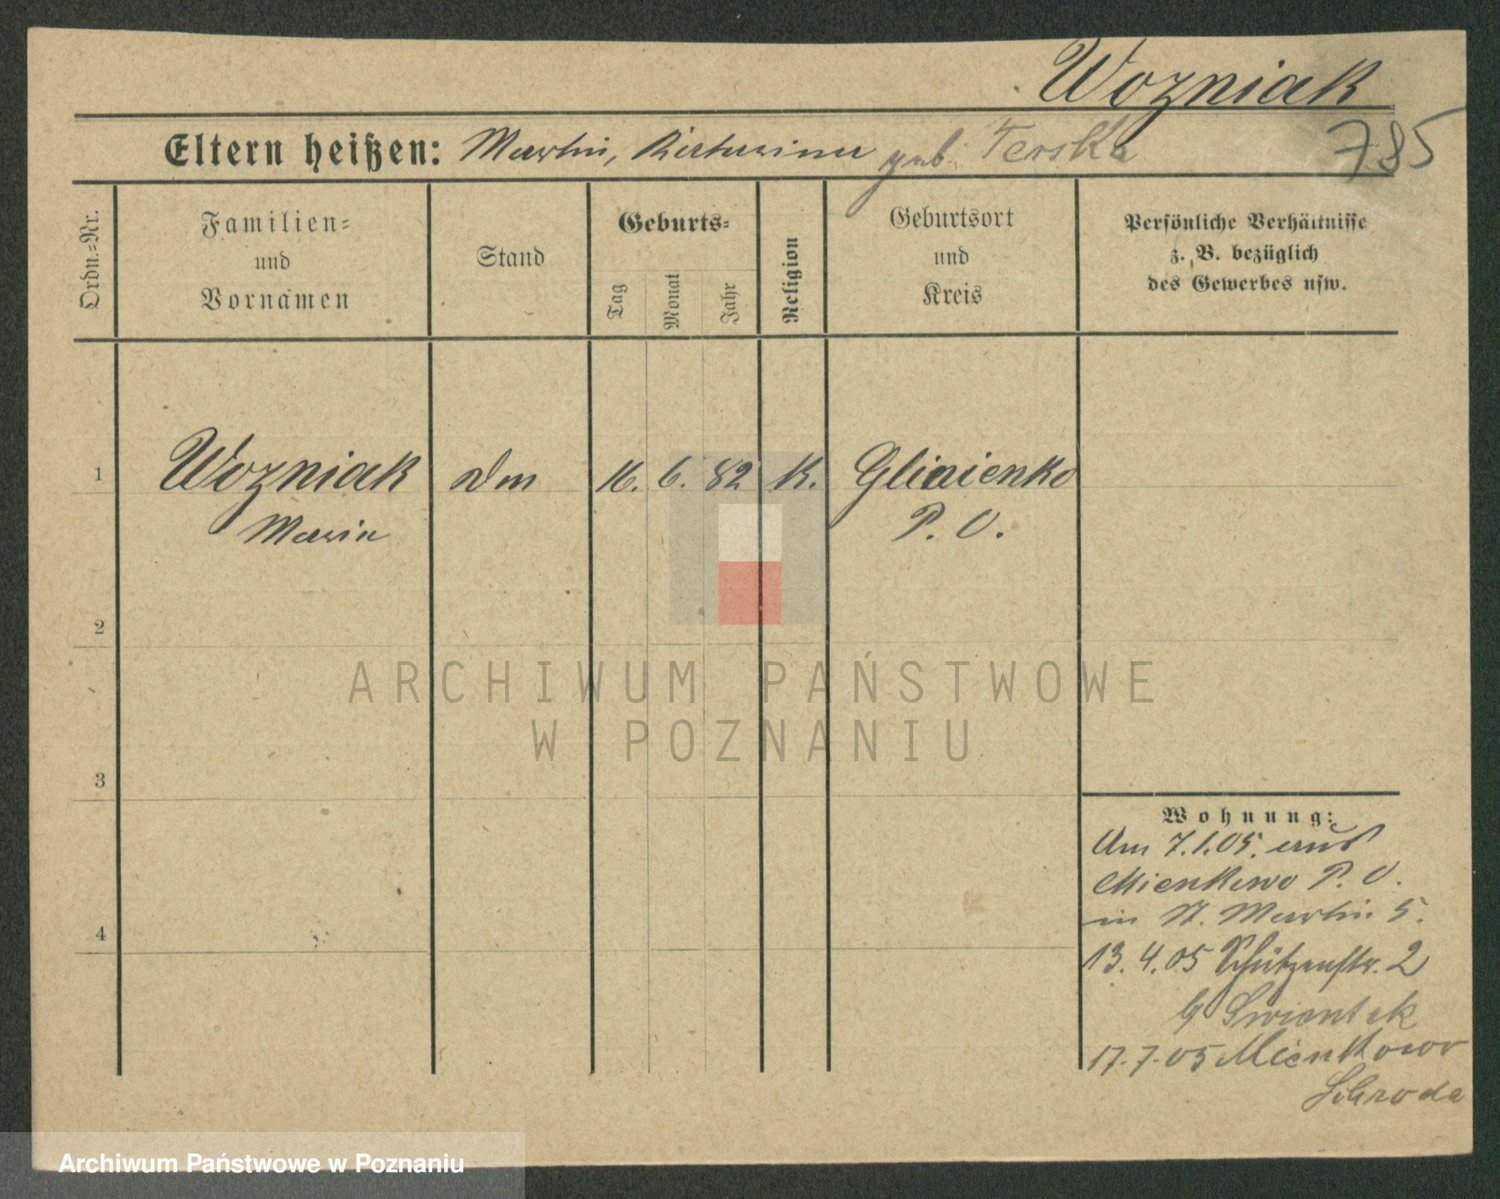 Wozniak
785
Eltern heißen: Martin, Katarina geb. Terska
Ordn.-Nr.
Familien-
und
Vornamen
Stand
Geburts-
Tag
Monat
Jahr
Religion
Geburtsort
und
Kreis
Persönliche Verhältnisse
z. B. bezüglich
des Gewerbes usw.
1 Wozniak 16. 6. 82 K.
Maria P. O.
2
3
4
Wohnung:
Am 7.1.05. aus
P. O.
in St. Martin 5.
13.4.05 Schützenstr. 2
b/ Swiontek
17.7.05
Schroda
ARCHIWUM PAŃSTWOWE
W POZNANIU
Archiwum Państwowe w Poznaniu